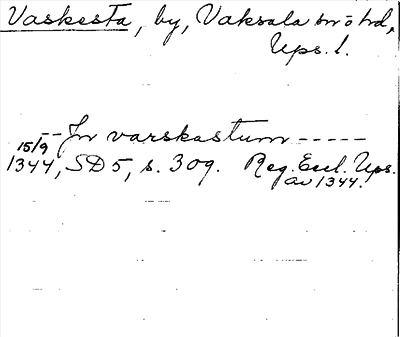 Vaskesta, by, Vaksala sn o hd,
Ups. l.
-- In varskastum -----
15/9
1344, SD 5, s. 309. Reg. Eccl. Ups.
av 1344.